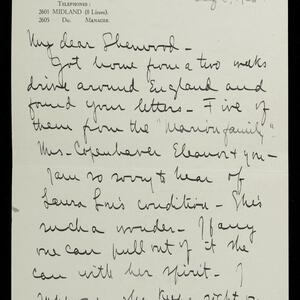 TELEPHONES:
2601 MIDLAND (8 Lines).
2605 Do. MANAGER.
My dear Sherwood -
Got home from a two weeks
drive around England and
found your letters - Five of
them from the "Marion family"
Mrs - Copenhaver Eleanor & you -
Am so sorry to hear of
Laura Lou's condition - She's
such a wonder - If any
one can pull out of it she
can with her spirit - I
she